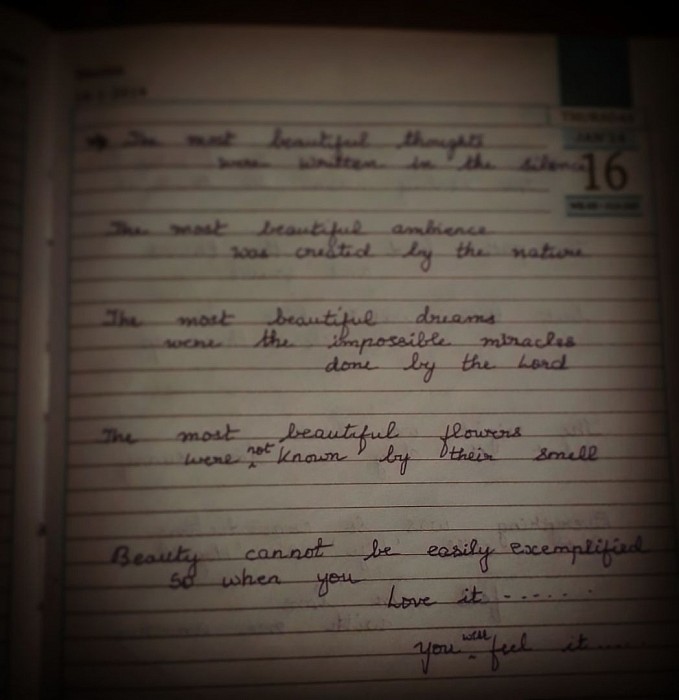 THURSDAY
JAN'14
16
→ The most beautiful thoughts
were written in the silence
The most beautiful ambience
was created by the nature
The most beautiful dreams
were the impossible miracles
done by the Lord
The most beautiful flowers
were not known by their smell
Beauty cannot be easily exemplified
so when you
Love it ......
you will feel it .....